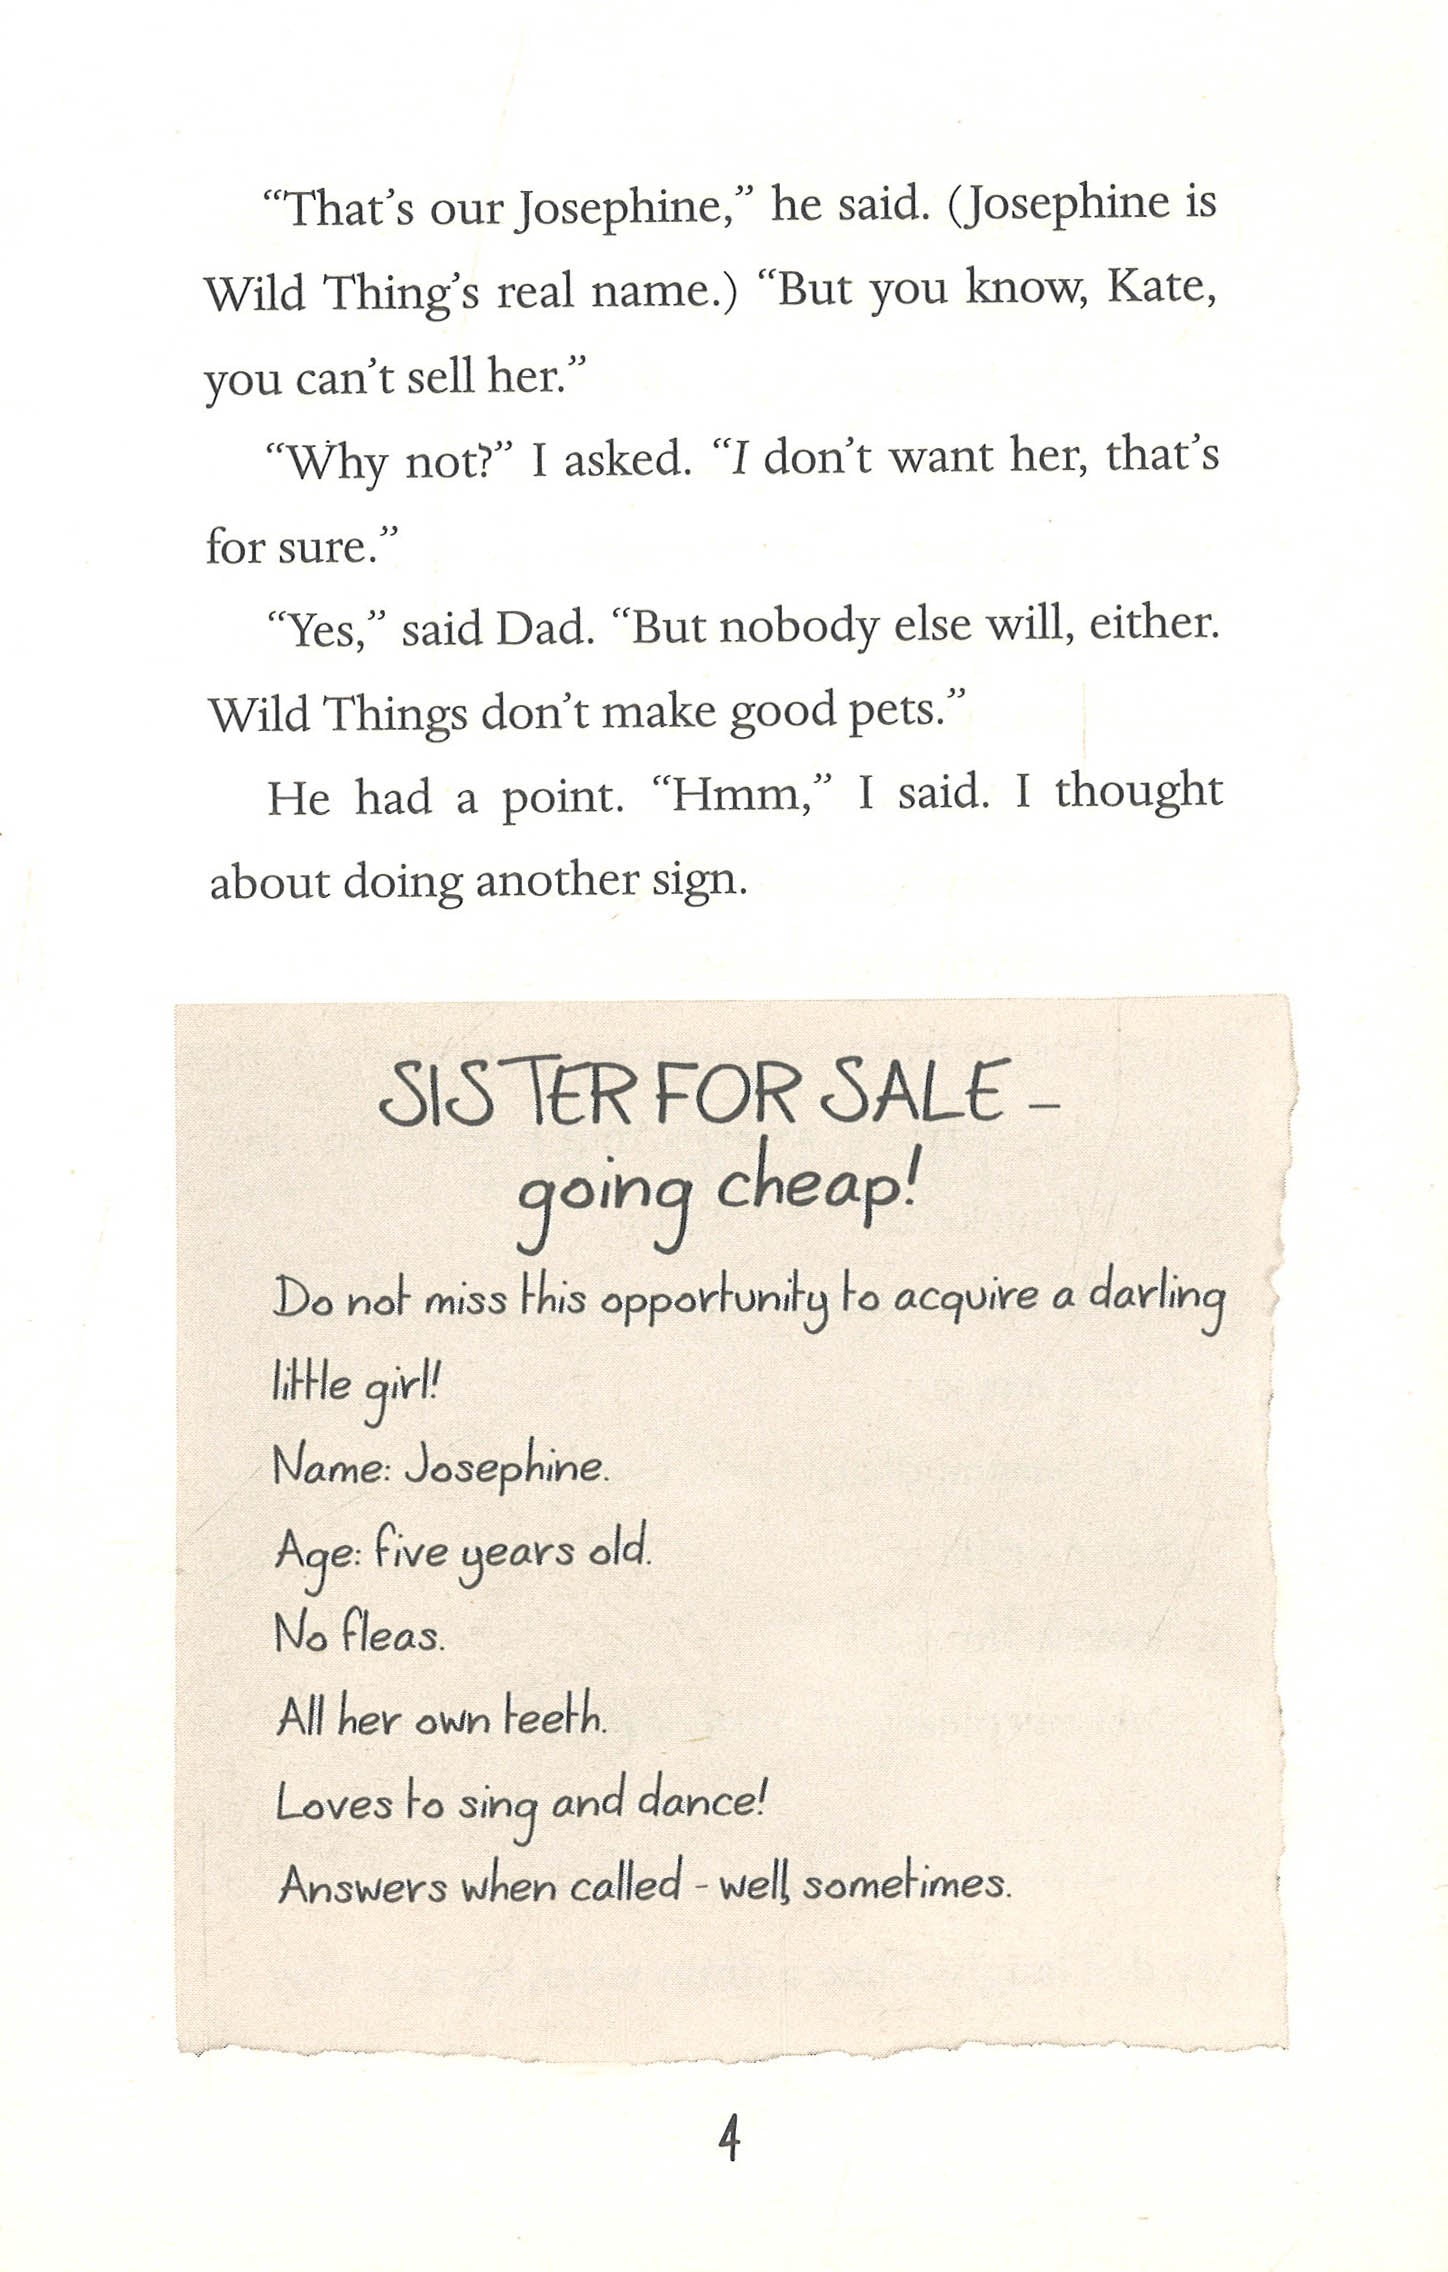 “That’s our Josephine,” he said. (Josephine is
Wild Thing’s real name.) “But you know, Kate,
you can’t sell her.”
“Why not?” I asked. “I don’t want her, that’s
for sure.”
“Yes,” said Dad. “But nobody else will, either.
Wild Things don’t make good pets.”
He had a point. “Hmm,” I said. I thought
about doing another sign.
SISTER FOR SALE –
going cheap!
Do not miss this opportunity to acquire a darling
little girl!
Name: Josephine.
Age: five years old.
No fleas.
All her own teeth.
Loves to sing and dance!
Answers when called - well, sometimes.
4